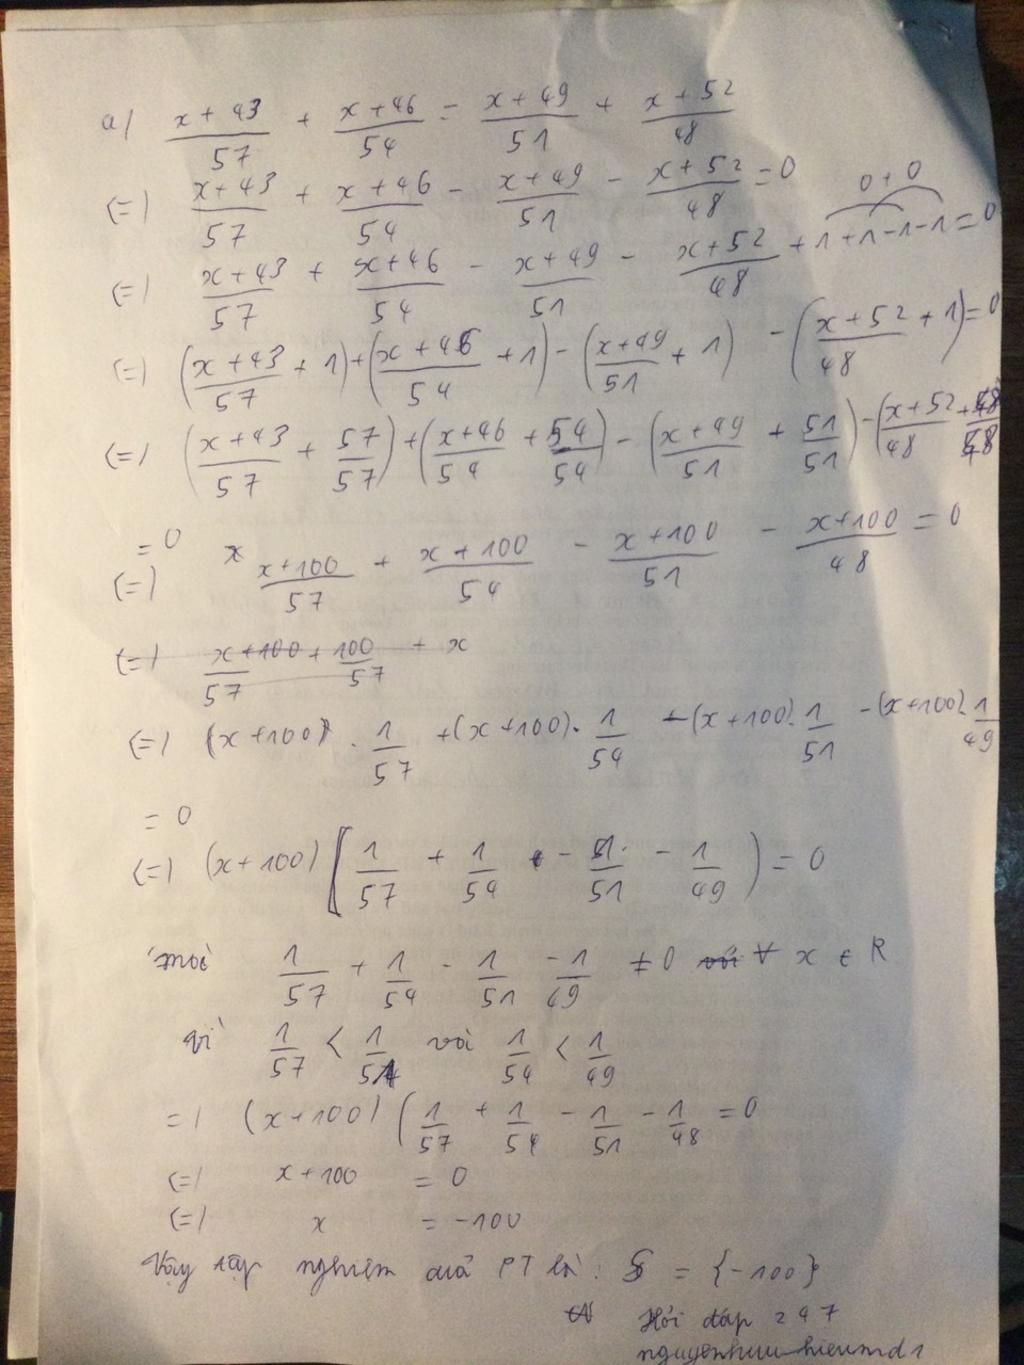 a) \frac{x+43}{57} + \frac{x+46}{54} = \frac{x+49}{51} + \frac{x+52}{48}
(=) \frac{x+43}{57} + \frac{x+46}{54} - \frac{x+49}{51} - \frac{x+52}{48} = 0
0 + 0
(=) \frac{x+43}{57} + \frac{x+46}{54} - \frac{x+49}{51} - \frac{x+52}{48} + 1 + 1 - 1 - 1 = 0
(=) (\frac{x+43}{57} + 1) + (\frac{x+46}{54} + 1) - (\frac{x+49}{51} + 1) - (\frac{x+52}{48} + 1) = 0
(=) (\frac{x+43}{57} + \frac{57}{57}) + (\frac{x+46}{54} + \frac{54}{54}) - (\frac{x+49}{51} + \frac{51}{51}) - (\frac{x+52}{48} + \frac{48}{48}
= 0
(=) \frac{x+100}{57} + \frac{x+100}{54} - \frac{x+100}{51} - \frac{x+100}{48} = 0
(=) \frac{x+100}{57} + \frac{100}{57} + x
(=) (x+100) . \frac{1}{57} + (x+100) . \frac{1}{54} - (x+100) . \frac{1}{51} - (x+100) . \frac{1}{49}
= 0
(=) (x+100) [\frac{1}{57} + \frac{1}{54} - \frac{1}{51} - \frac{1}{49}) = 0
mà \frac{1}{57} + \frac{1}{54} - \frac{1}{51} - \frac{1}{49} ≠ 0 với ∀ x ∈ R
vì \frac{1}{57} < \frac{1}{51} và \frac{1}{54} < \frac{1}{49}
=) (x+100) (\frac{1}{57} + \frac{1}{54} - \frac{1}{51} - \frac{1}{48} = 0
(=) x+100 = 0
(=) x = -100
Vậy tập nghiệm của PT là : S = {-100}
Hỏi đáp 247
nguyenhuuhieumd1